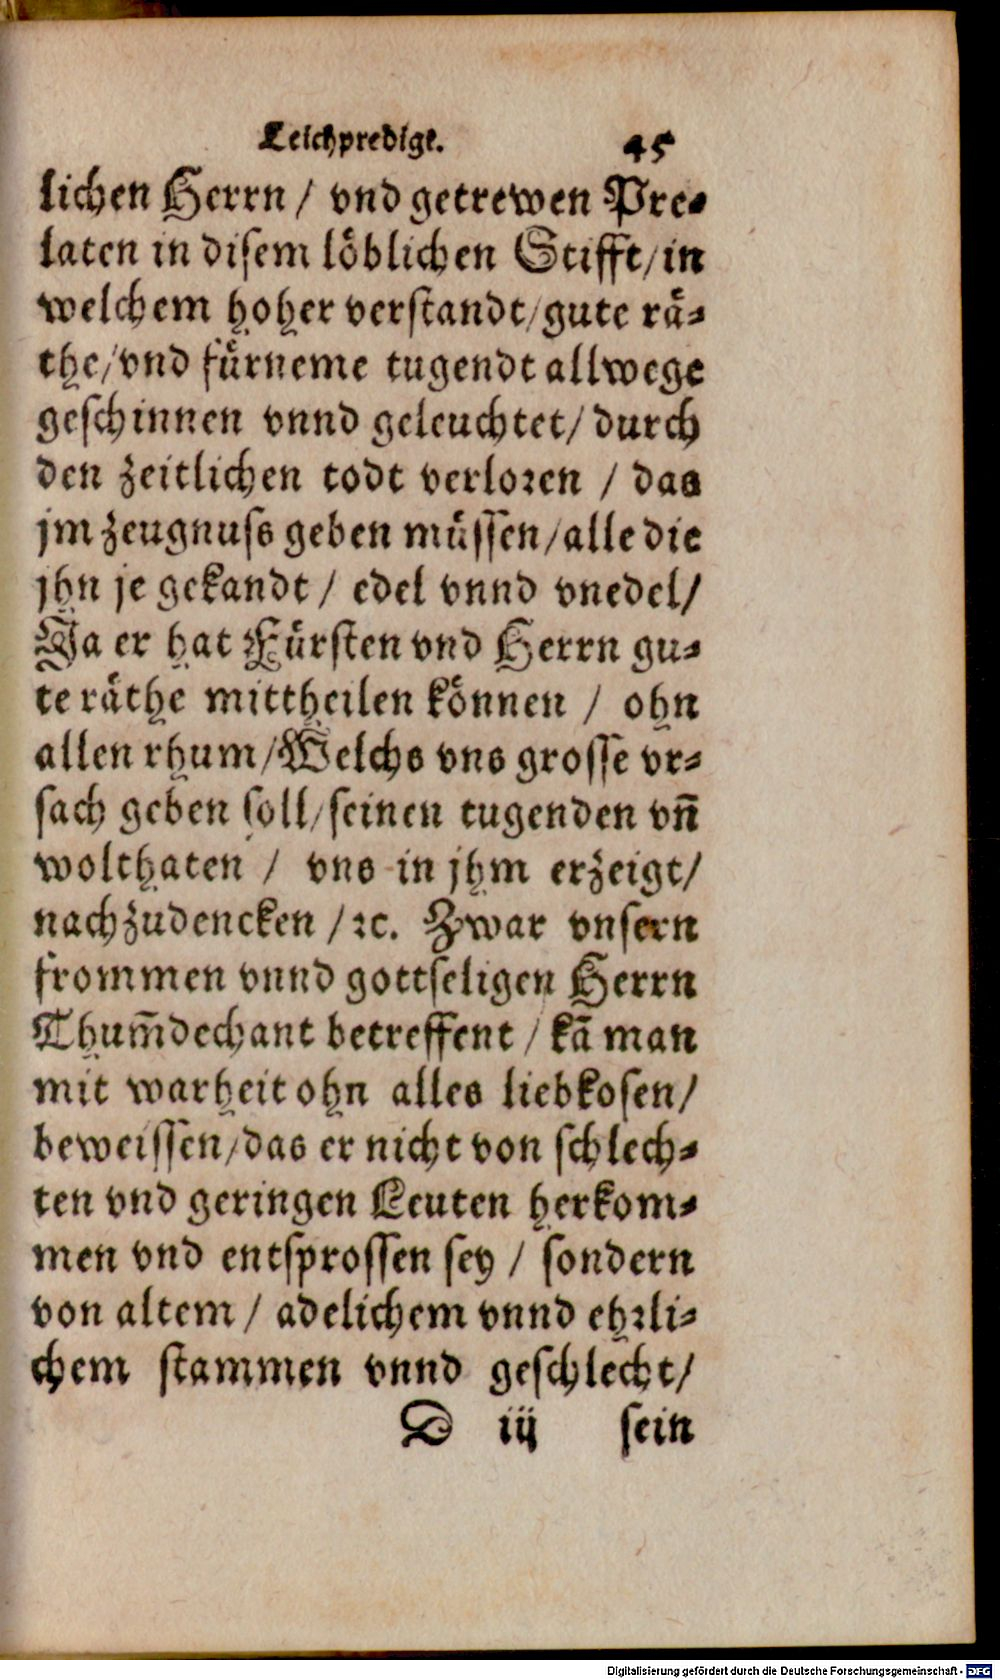 Leichpredigt. 45
lichen Herrn / vnd getrewen Pre-
laten in disem löblichen Stifft / in
welchem hoher verstandt / gute rä-
the / vnd fürneme tugendt allwege
geschinnen vnnd geleuchtet / durch
den zeitlichen todt verloren / das
jm zeugnuss geben müssen / alle die
jhn je gekandt / edel vnnd vnedel /
Ja er hat Fürsten vnd Herrn gu-
te räthe mittheilen können / ohn
allen rhum / Welchs vns grosse vr-
sach geben soll / seinen tugenden vn̄
wolthaten / vns in jhm erzeigt /
nachzudencken / ꝛc. Zwar vnsern
frommen vnnd gottseligen Herrn
Thum̄dechant betreffent / kā man
mit warheit ohn alles liebkosen /
beweissen / das er nicht von schlech-
ten vnd geringen Leuten herkom-
men vnd entsprossen sey / sondern
von altem / adelichem vnnd ehrli-
chem stammen vnnd geschlecht /
D iij sein
Digitalisierung gefördert durch die Deutsche Forschungsgemeinschaft - DFG